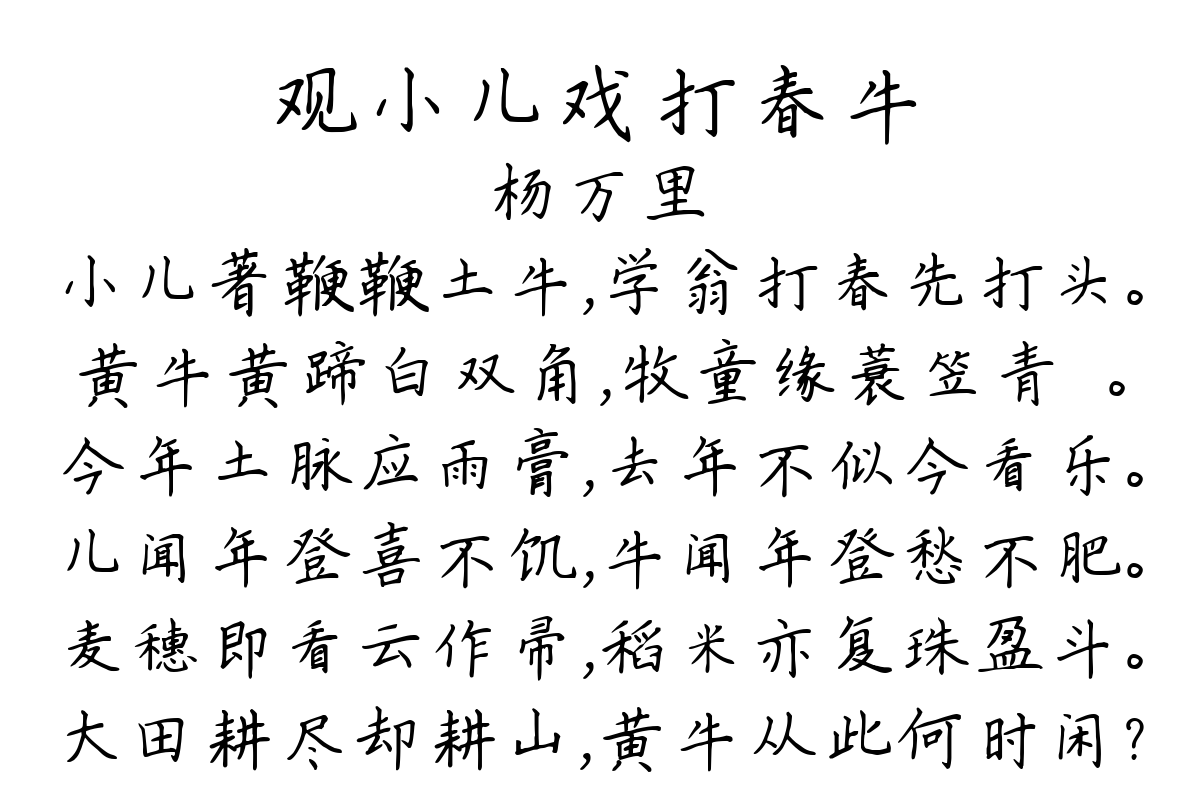 观小儿戏打春牛
杨万里
小儿著鞭鞭土牛,学翁打春先打头。
黄牛黄蹄白双角,牧童缘蓑笠青 。
今年土脉应雨膏,去年不似今看乐。
儿闻年登喜不饥,牛闻年登愁不肥。
麦穗即看云作帚,稻米亦复珠盈斗。
大田耕尽却耕山,黄牛从此何时闲?